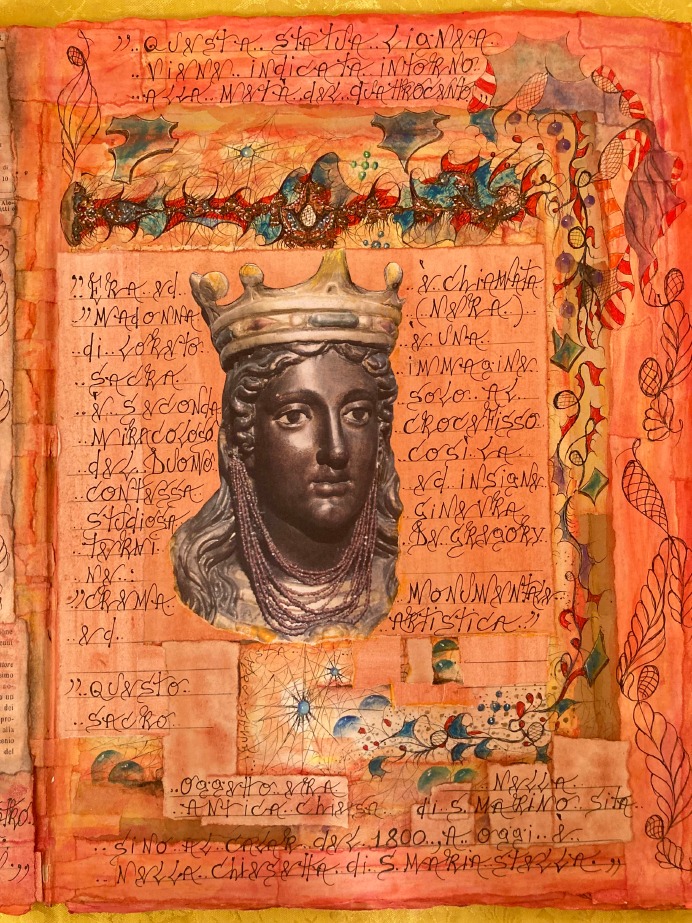 "..QUESTA.. STATUA.. LIGNEA..
..VIENE.. INDICATA INTORNO.
..ALLA.. METÀ del QUATTROCENTO
"ERA.. ed.. ..è CHIAMATA
"MADONNA. (NERA.)
..di.. LORETO. ..è UNA.
..SACRA. ..IMMAGINE.
..è SECONDA SOLO.. AL.
..MIRACOLOSO CROCEFISSO.
..del DUOMO. COSÌ LA.
CONTESSA. ..ed INSIGNE.
STUDIOSA. GINEVRA.
TERNI.. DE GREGORY..
NE..:
"CREMA. ..MONUMENTALE
..ed. ARTISTICA.."
"..QUESTO..
..SACRO.
..OGGETTO.. ERA.. ..NELLA..
ANTICA.. CHIESA di.. S. MARINO. SITA..
..SINO AL CALAR del 1800.., A OGGI.. è..
..NELLA.. CHIESETTA.. di.. S. MARIA STELLA.."